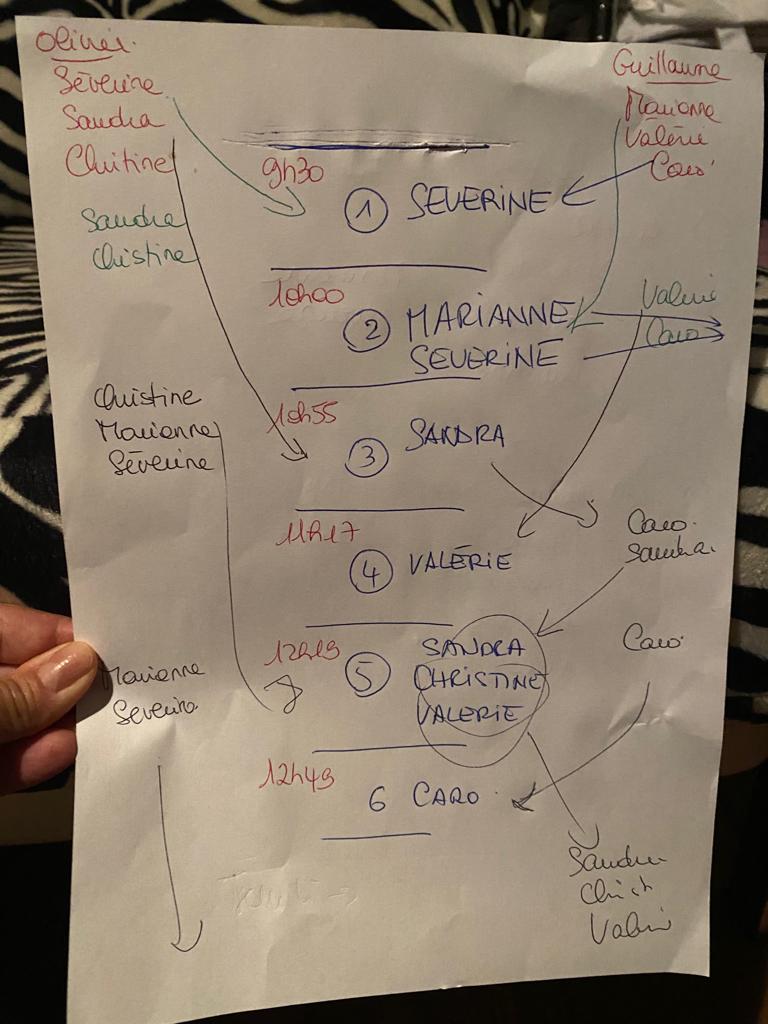 Olivier.
Séverine
Sandra
Chritine
Guillaume
Marianne
Valérie
Caro
9h30
1 SEVERINE
Sandra
Christine
10h00
2 MARIANNE
SEVERINE
Valerie
Caro
10h55
3 SANDRA
Christine
Marianne
Séverine
11h17
4 VALÉRIE
Caro.
Sandra.
12h19
5 SANDRA
CHRISTINE
VALERIE
Caro
Marianne
Severine
12h49
6 CARO
Sandra
Christ
Valerie